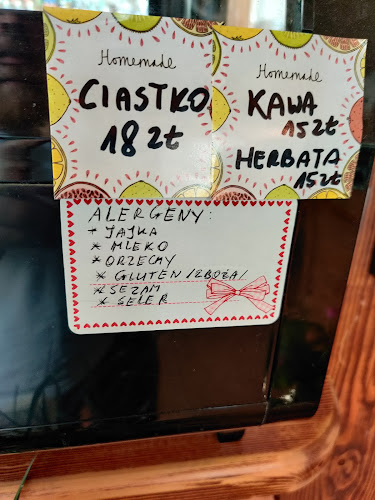 Homemade
CIASTKO
18 zł
Homemade
KAWA
15 zł
HERBATA
15 zł
ALERGENY:
* JAJKA
* MLEKO
* ORZECHY
* GLUTEN /ZBOŻA/
* SEZAM
* SELER